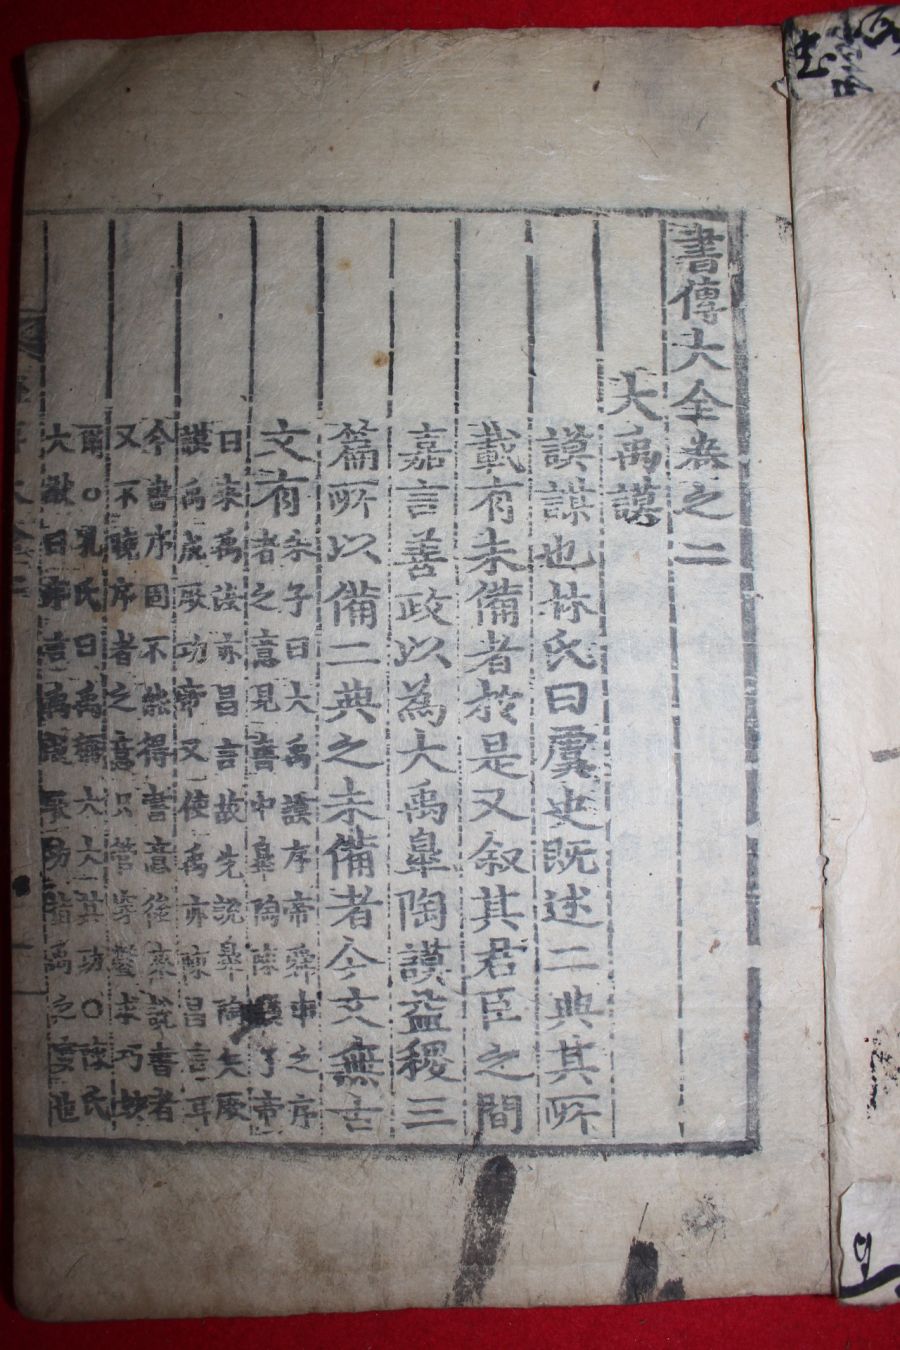 書傳大全卷之二
大禹謨
謨謀也林氏曰虞史旣述二典其所
載有未備者於是又叙其君臣之間
嘉言善政以為大禹皐陶謨益稷三
篇所以備二典之未備者今文無古
文有
朱子曰大禹謨序帝舜申之序
者之意見書中皐陶陳謨了帝
曰來禹汝亦昌言故先說皐陶矢厥
謨禹成厥功帝又使禹亦陳昌言耳
今書序固不能得書意後來說書者
又不曉序者之意只管穿鑿求巧妙
爾○孔氏曰禹稱大大其功○陳氏
大猷曰序言禹成厥功指禹之